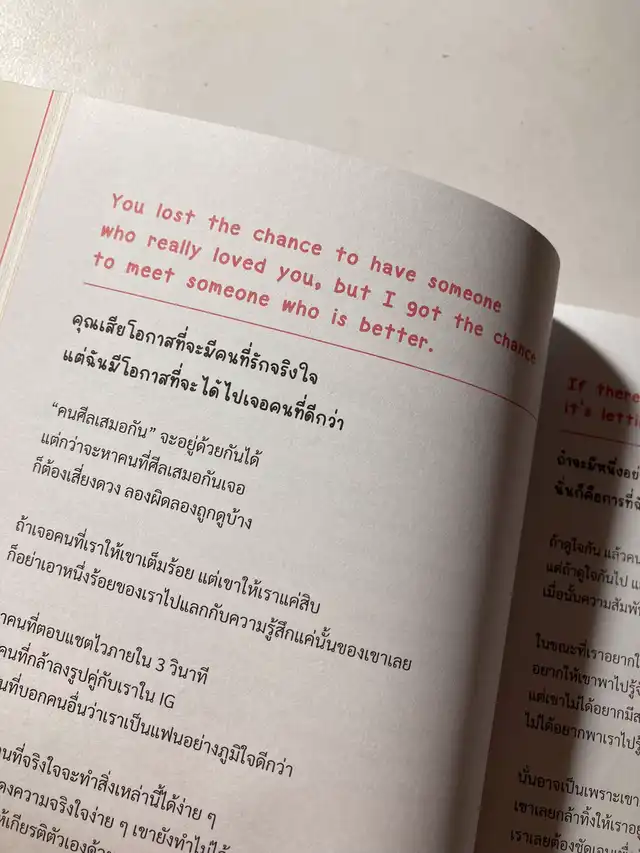 You lost the chance to have someone
who really loved you, but I got the chance
to meet someone who is better.
คุณเสียโอกาสที่จะมีคนที่รักจริงใจ
แต่ฉันมีโอกาสที่จะได้ไปเจอคนที่ดีกว่า
“คนศีลเสมอกัน” จะอยู่ด้วยกันได้
แต่กว่าจะหาคนที่ศีลเสมอกันเจอ
ก็ต้องเสี่ยงดวง ลองผิดลองถูกดูบ้าง
ถ้าเจอคนที่เราให้เขาเต็มร้อย แต่เขาให้เราแค่สิบ
ก็อย่าเอาหนึ่งร้อยของเราไปแลกกับความรู้สึกแค่นั้นของเขาเลย
คนที่ตอบแชตไวภายใน 3 วินาที
คนที่กล้าลงรูปคู่กับเราใน IG
ที่บอกคนอื่นว่าเราเป็นแฟนอย่างภูมิใจดีกว่า
ที่จริงใจจะทำสิ่งเหล่านี้ได้ง่าย ๆ
ความจริงใจง่าย ๆ เขายังทำไม่ได้
ให้เกียรติตัวเองด้วย
If there
it's
ถ้าจะมีหนึ่ง
นั่นก็คือการที่
ถ้าดูใจกัน แล้ว
แต่ถ้าดูใจกันไป
เมื่อนั้นความ
ในขณะที่เราอยาก
อยากให้เขาพาไป
แต่เขาไม่ได้อยาก
ไม่ได้อยากพาเราไป
นั่นอาจเป็นเพราะเขา
เขาเลยกล้าทิ้งให้เรา
เราเลยต้อง